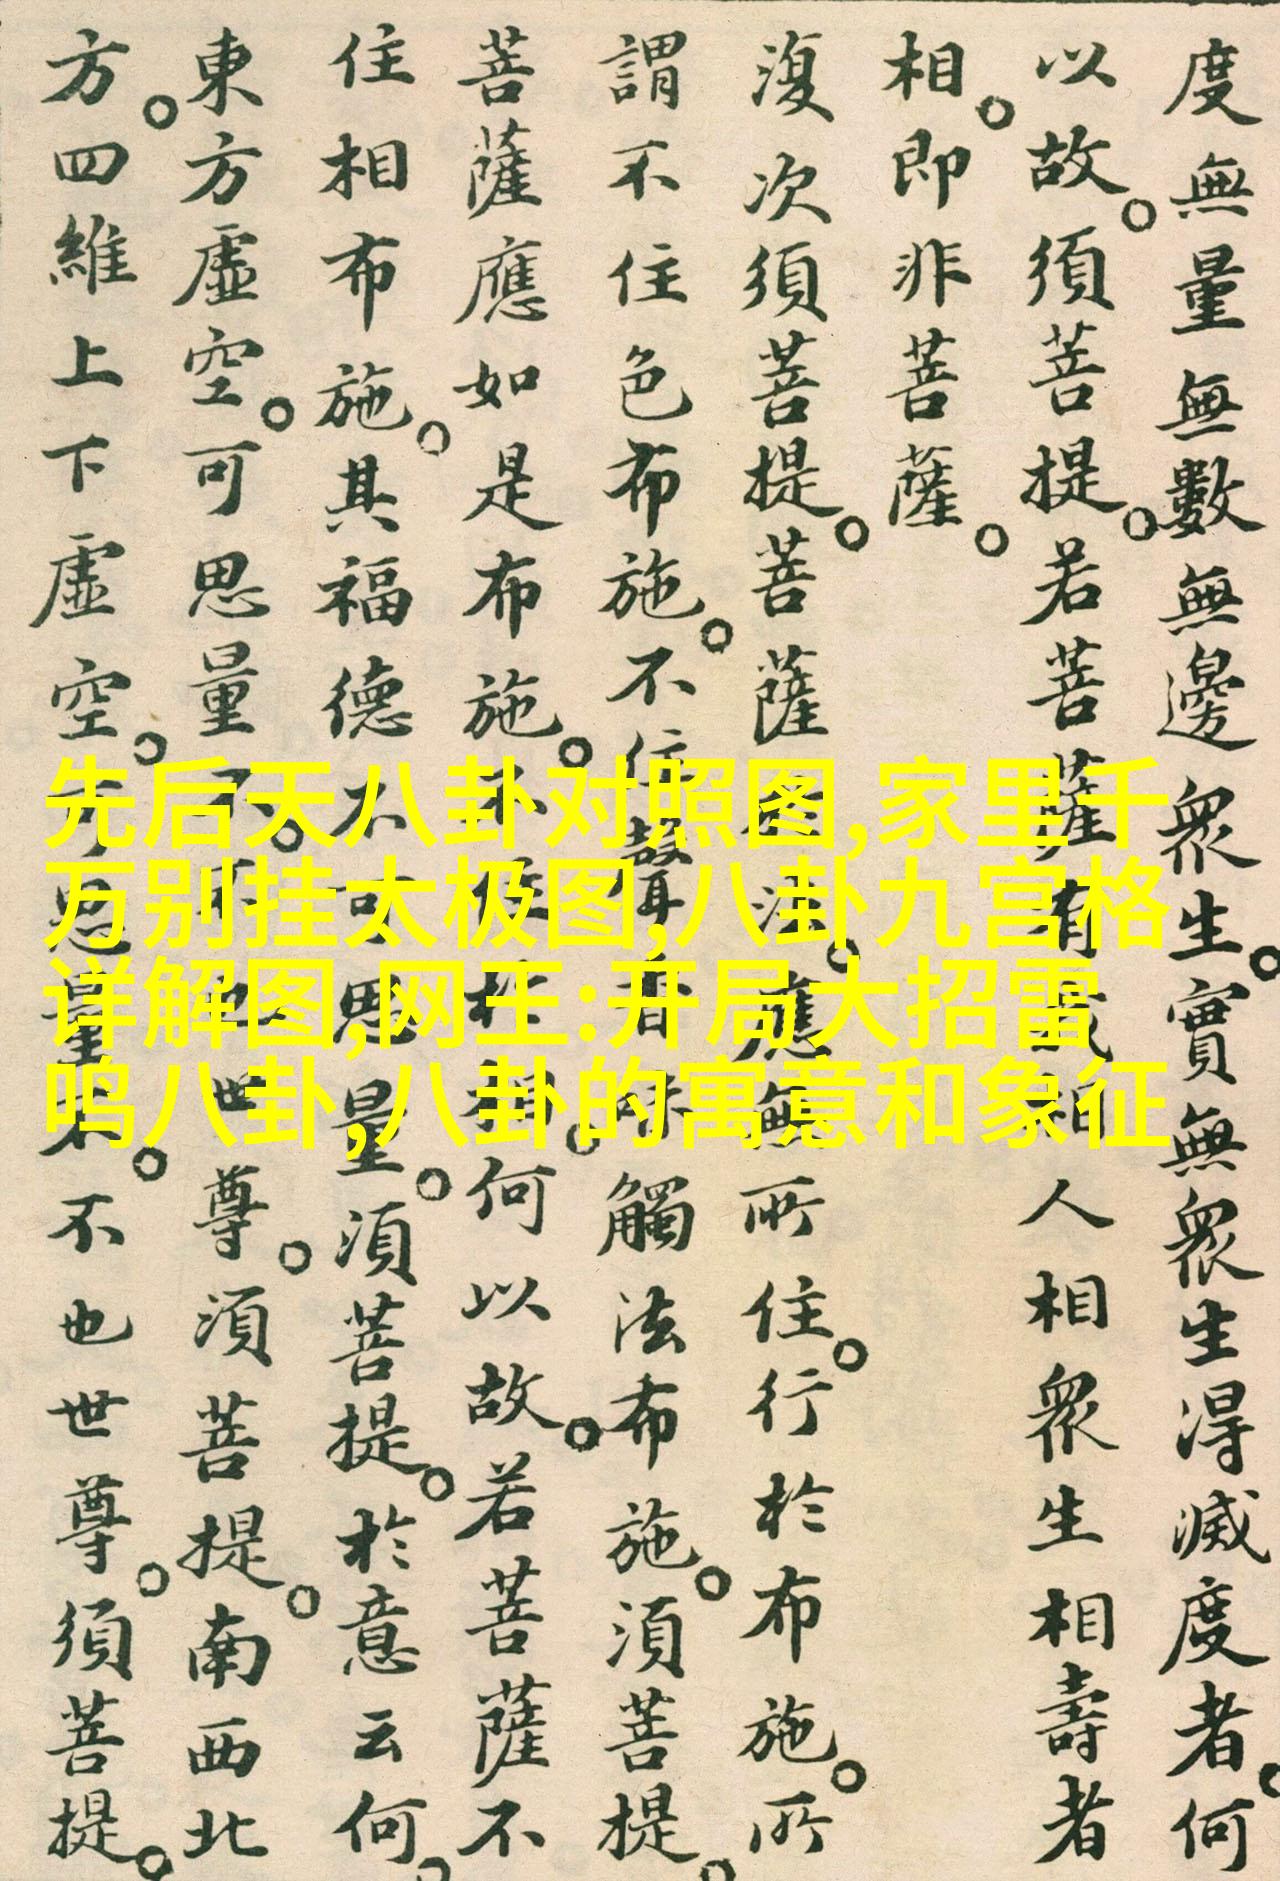 度無量無數無邊衆生。實無衆生得滅度者。何
以故。須菩提。若菩薩有我相人相衆生相壽者
相。即非菩薩。
復次須菩提。菩薩於法。應無所住。行於布施。所
謂不住色布施。不住聲香味觸法布施。須菩提。
菩薩應如是布施。不住於相。何以故。若菩薩不
住相布施。其福德不可思量。須菩提。於意云何。
東方虛空。可思量不。不也世尊。須菩提。南西北
方。四維上下虛空。可思量不。不也世尊。須菩提。
先后天八卦对照图,家里千
万别挂太极图,八卦九宫格
详解图,网王:开局大招雷
鸣八卦,八卦的寓意和象征